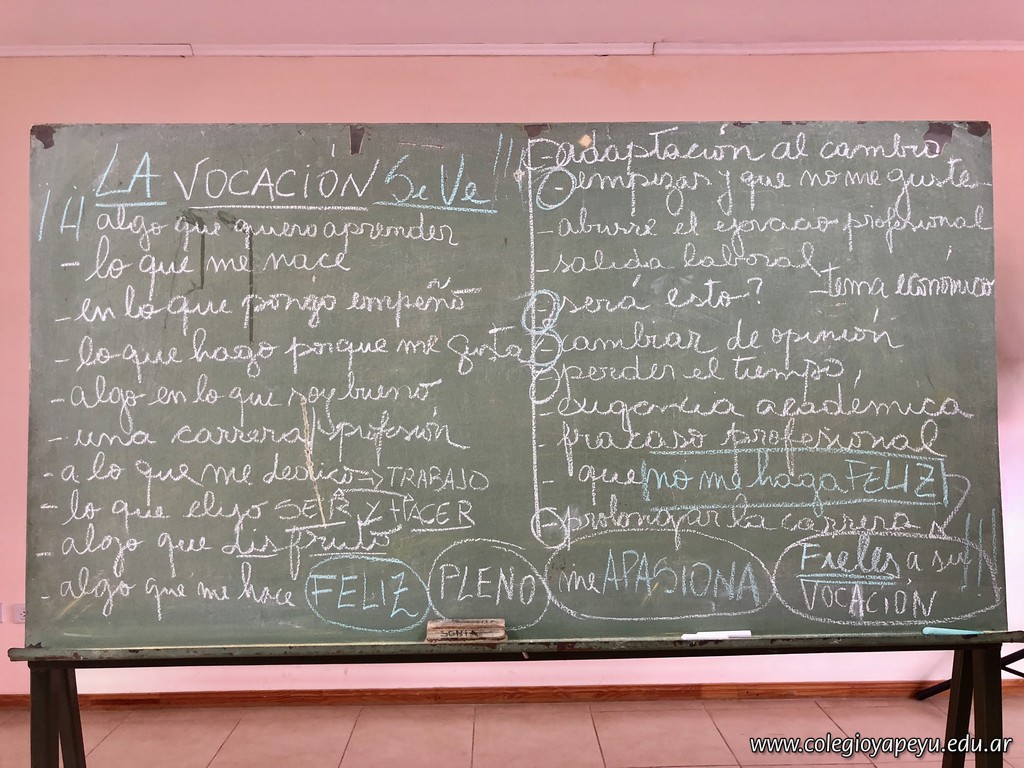 ¡¡¡ LA VOCACIÓN Se Ve !!!
algo que quiero aprender
- lo que me nace
- en lo que pongo empeño
- lo que hago porque me gusta
- algo en lo que soy bueno
- una carrera / profesión
- a lo que me dedico → TRABAJO
- lo que elijo SER Y HACER
- algo que disfruto
- algo que me hace FELIZ PLENO me APASIONA
- adaptación al cambio
- empezar y que no me guste
- aburra el profesional
- salida laboral
- tema económico
- será esto?
- cambiar de opinión
- perder el tiempo
- exigencia académica
- fracaso profesional
- que no me haga FELIZ
- prolongar la carrera
Fieles a su !!!
VOCACIÓN
SONIA
www.colegioyapeyu.edu.ar